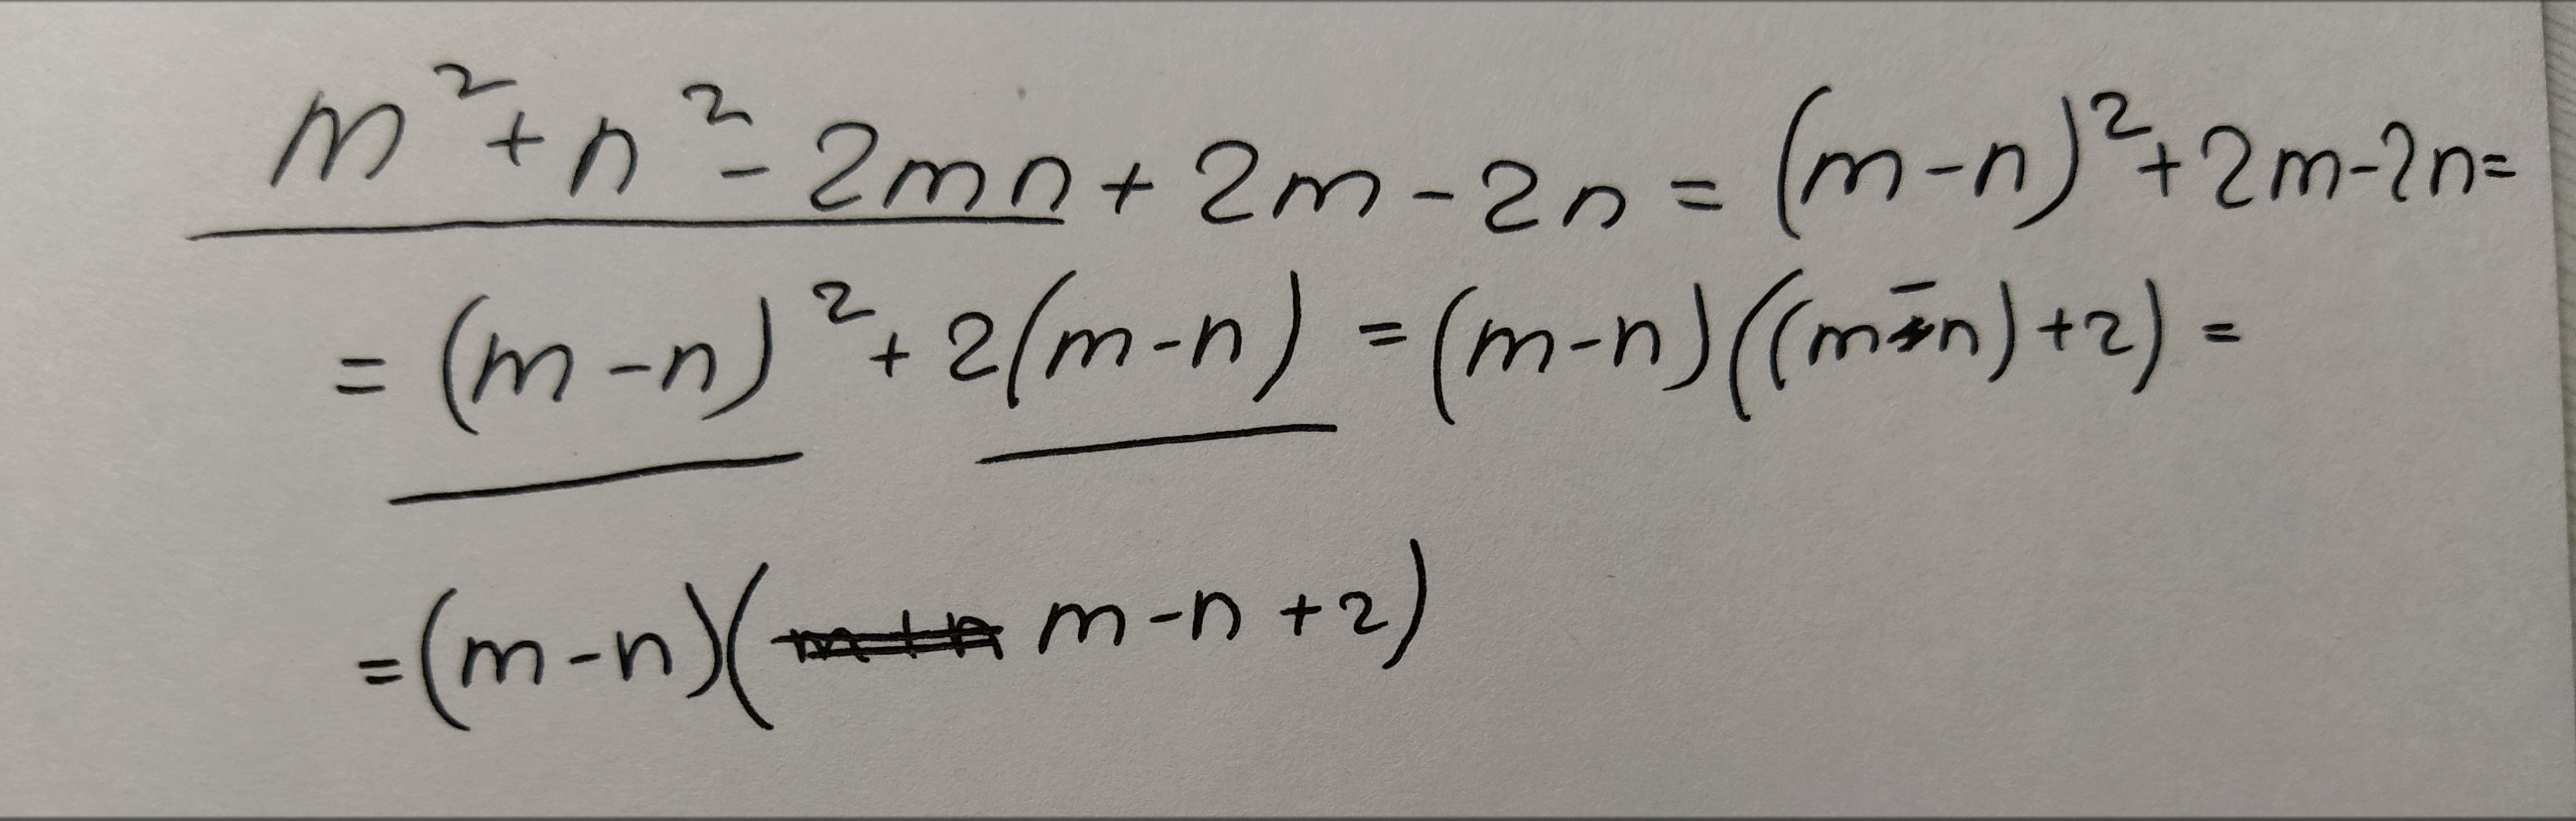 m² + n² - 2mn + 2m - 2n = (m - n)² + 2m - 2n =
= (m - n)² + 2(m - n) = (m - n)((m - n) + 2) =
= (m - n)(m - n + 2)